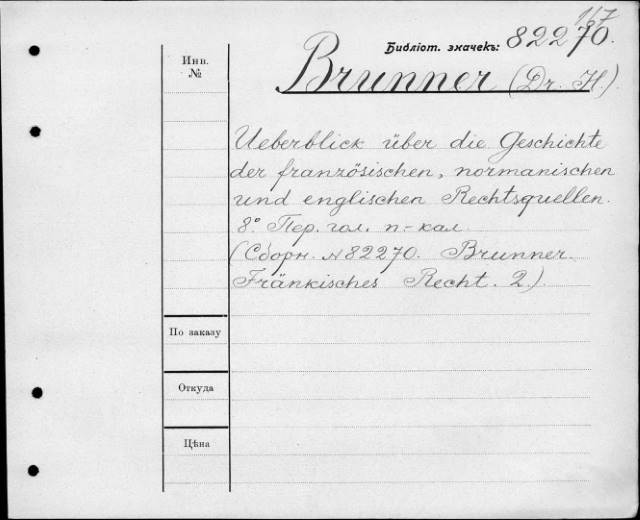 167
Библіот. значекъ: 82270.
Инв.
№
Brunner (Dr. H.)
Ueberblick über die Geschichte
der französischen, normanischen
und englischen Rechtsquellen.
8° Пер. гол. п.-кал.
(Сборн. №82270. Brunner.
Fränkisches Recht. 2.)
По заказу
Откуда
Цѣна